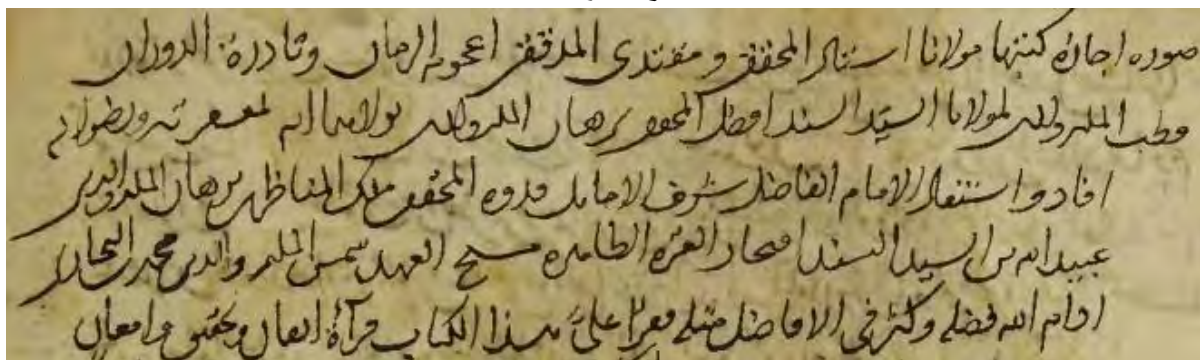 صوره اجازة كتبها مولانا استاد المحققين و مقتدى المدققين اعجوبة الزمان و نادرة الدوران
قطب الملة والدين لمولانا السيد السند افضل المحققين برهان الملة والدين
افاد و استفاد الامام الفاضل شرف الاماثل قدوة المحققين ملك المناظرين برهان الملة والدين
عبيد الله بن السيد السند افتخار العترة الطاهرة مسيح العهد شمس الملة والدين محمد البخاري
ادام الله فضله وكثر في الافاضل مثله فقرأ على هذا الكتاب قرأة اتقان وتحقيق وامعان